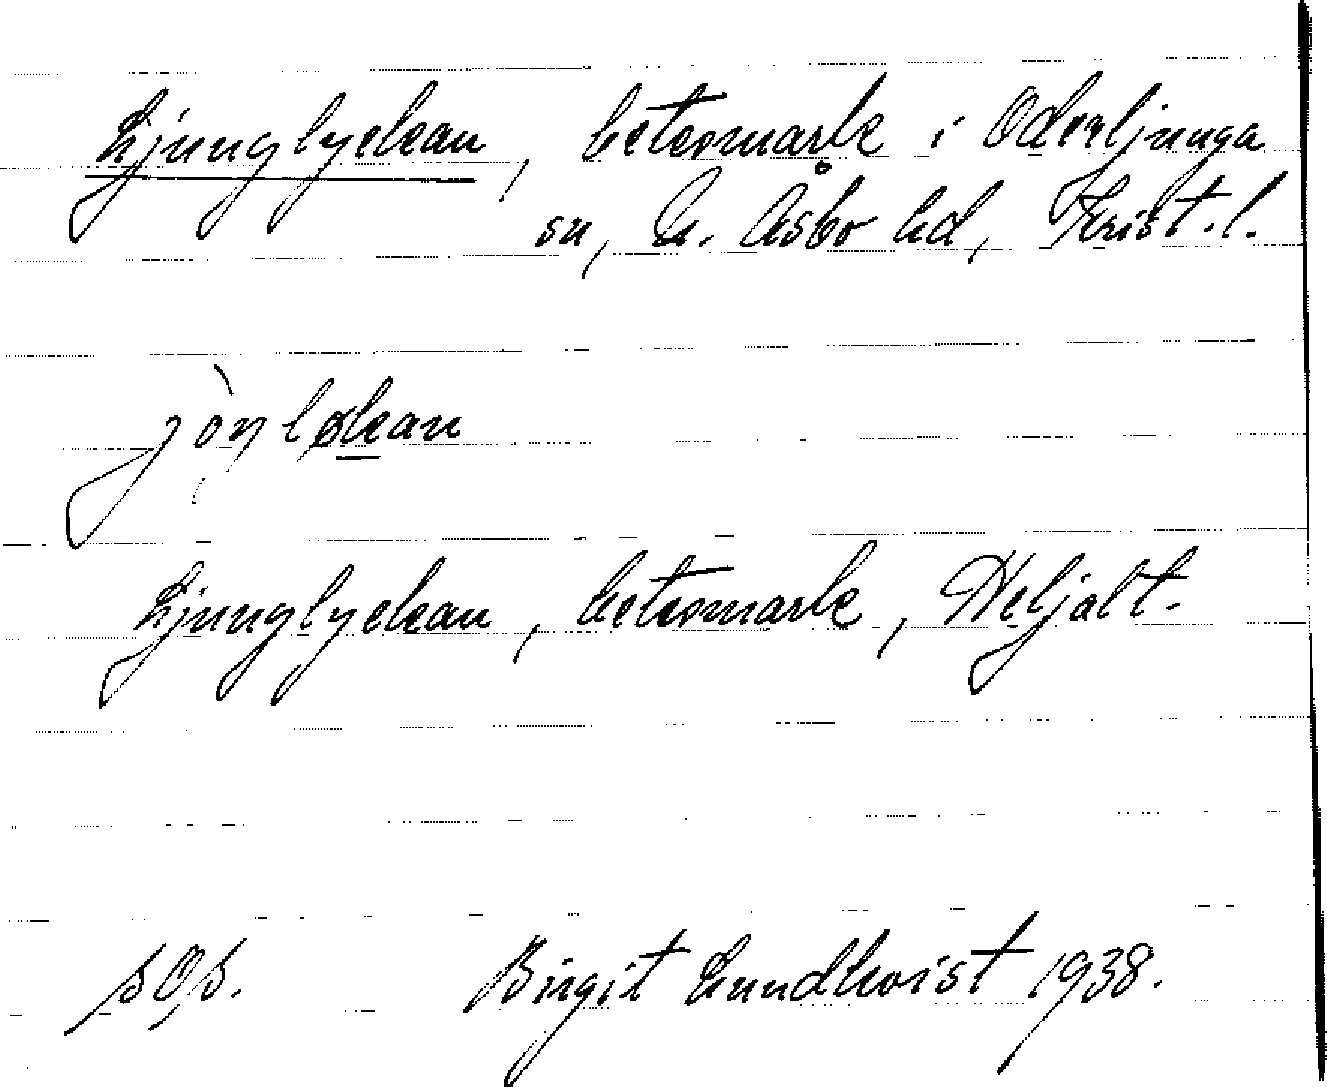 Ljunglyckan, betesmark i Oderljunga
sn, N. Åsbo hd, Krist. l.
jòŋløkan
Ljunglyckan, betesmark, Heljalt.
sOs. Birgit Lundkvist 1938.